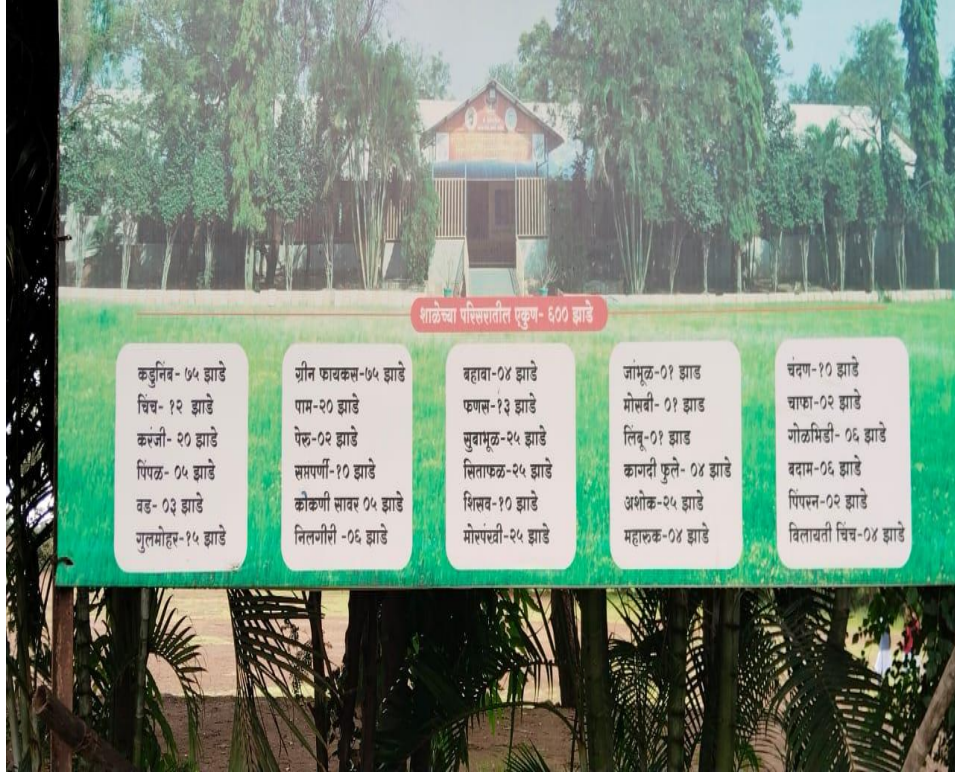 शाळेच्या परिसरातील एकुण- ६०० झाडे
कडुनिंब- ७५ झाडे
चिंच- १२ झाडे
करंजी- २० झाडे
पिंपळ- ०५ झाडे
वड- ०३ झाडे
गुलमोहर-१५ झाडे
ग्रीन फायकस-७५ झाडे
पाम-२० झाडे
पेरू-०२ झाडे
सप्तपर्णी-१० झाडे
कोकणी सावर ०५ झाडे
निलगीरी -०६ झाडे
बहावा-०४ झाडे
फणस-१३ झाडे
सुबाभूळ-२५ झाडे
सिताफळ-२५ झाडे
शिसव-१० झाडे
मोरपंखी-२५ झाडे
जांभूळ-०१ झाड
मोसबी- ०१ झाड
लिंबू-०१ झाड
कागदी फुले- ०४ झाडे
अशोक-२५ झाडे
महारूक-०४ झाडे
चंदण-१० झाडे
चाफा-०२ झाडे
गोळभिडी- ०६ झाडे
बदाम-०६ झाडे
पिंपरन-०२ झाडे
विलायती चिंच-०४ झाडे